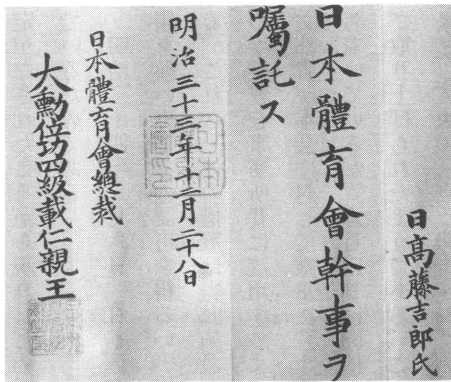 日高藤吉郎氏
日本體育會幹事ヲ
囑託ス
明治三十三年十二月二十八日
日本體育會總裁
大勲位功四級載仁親王